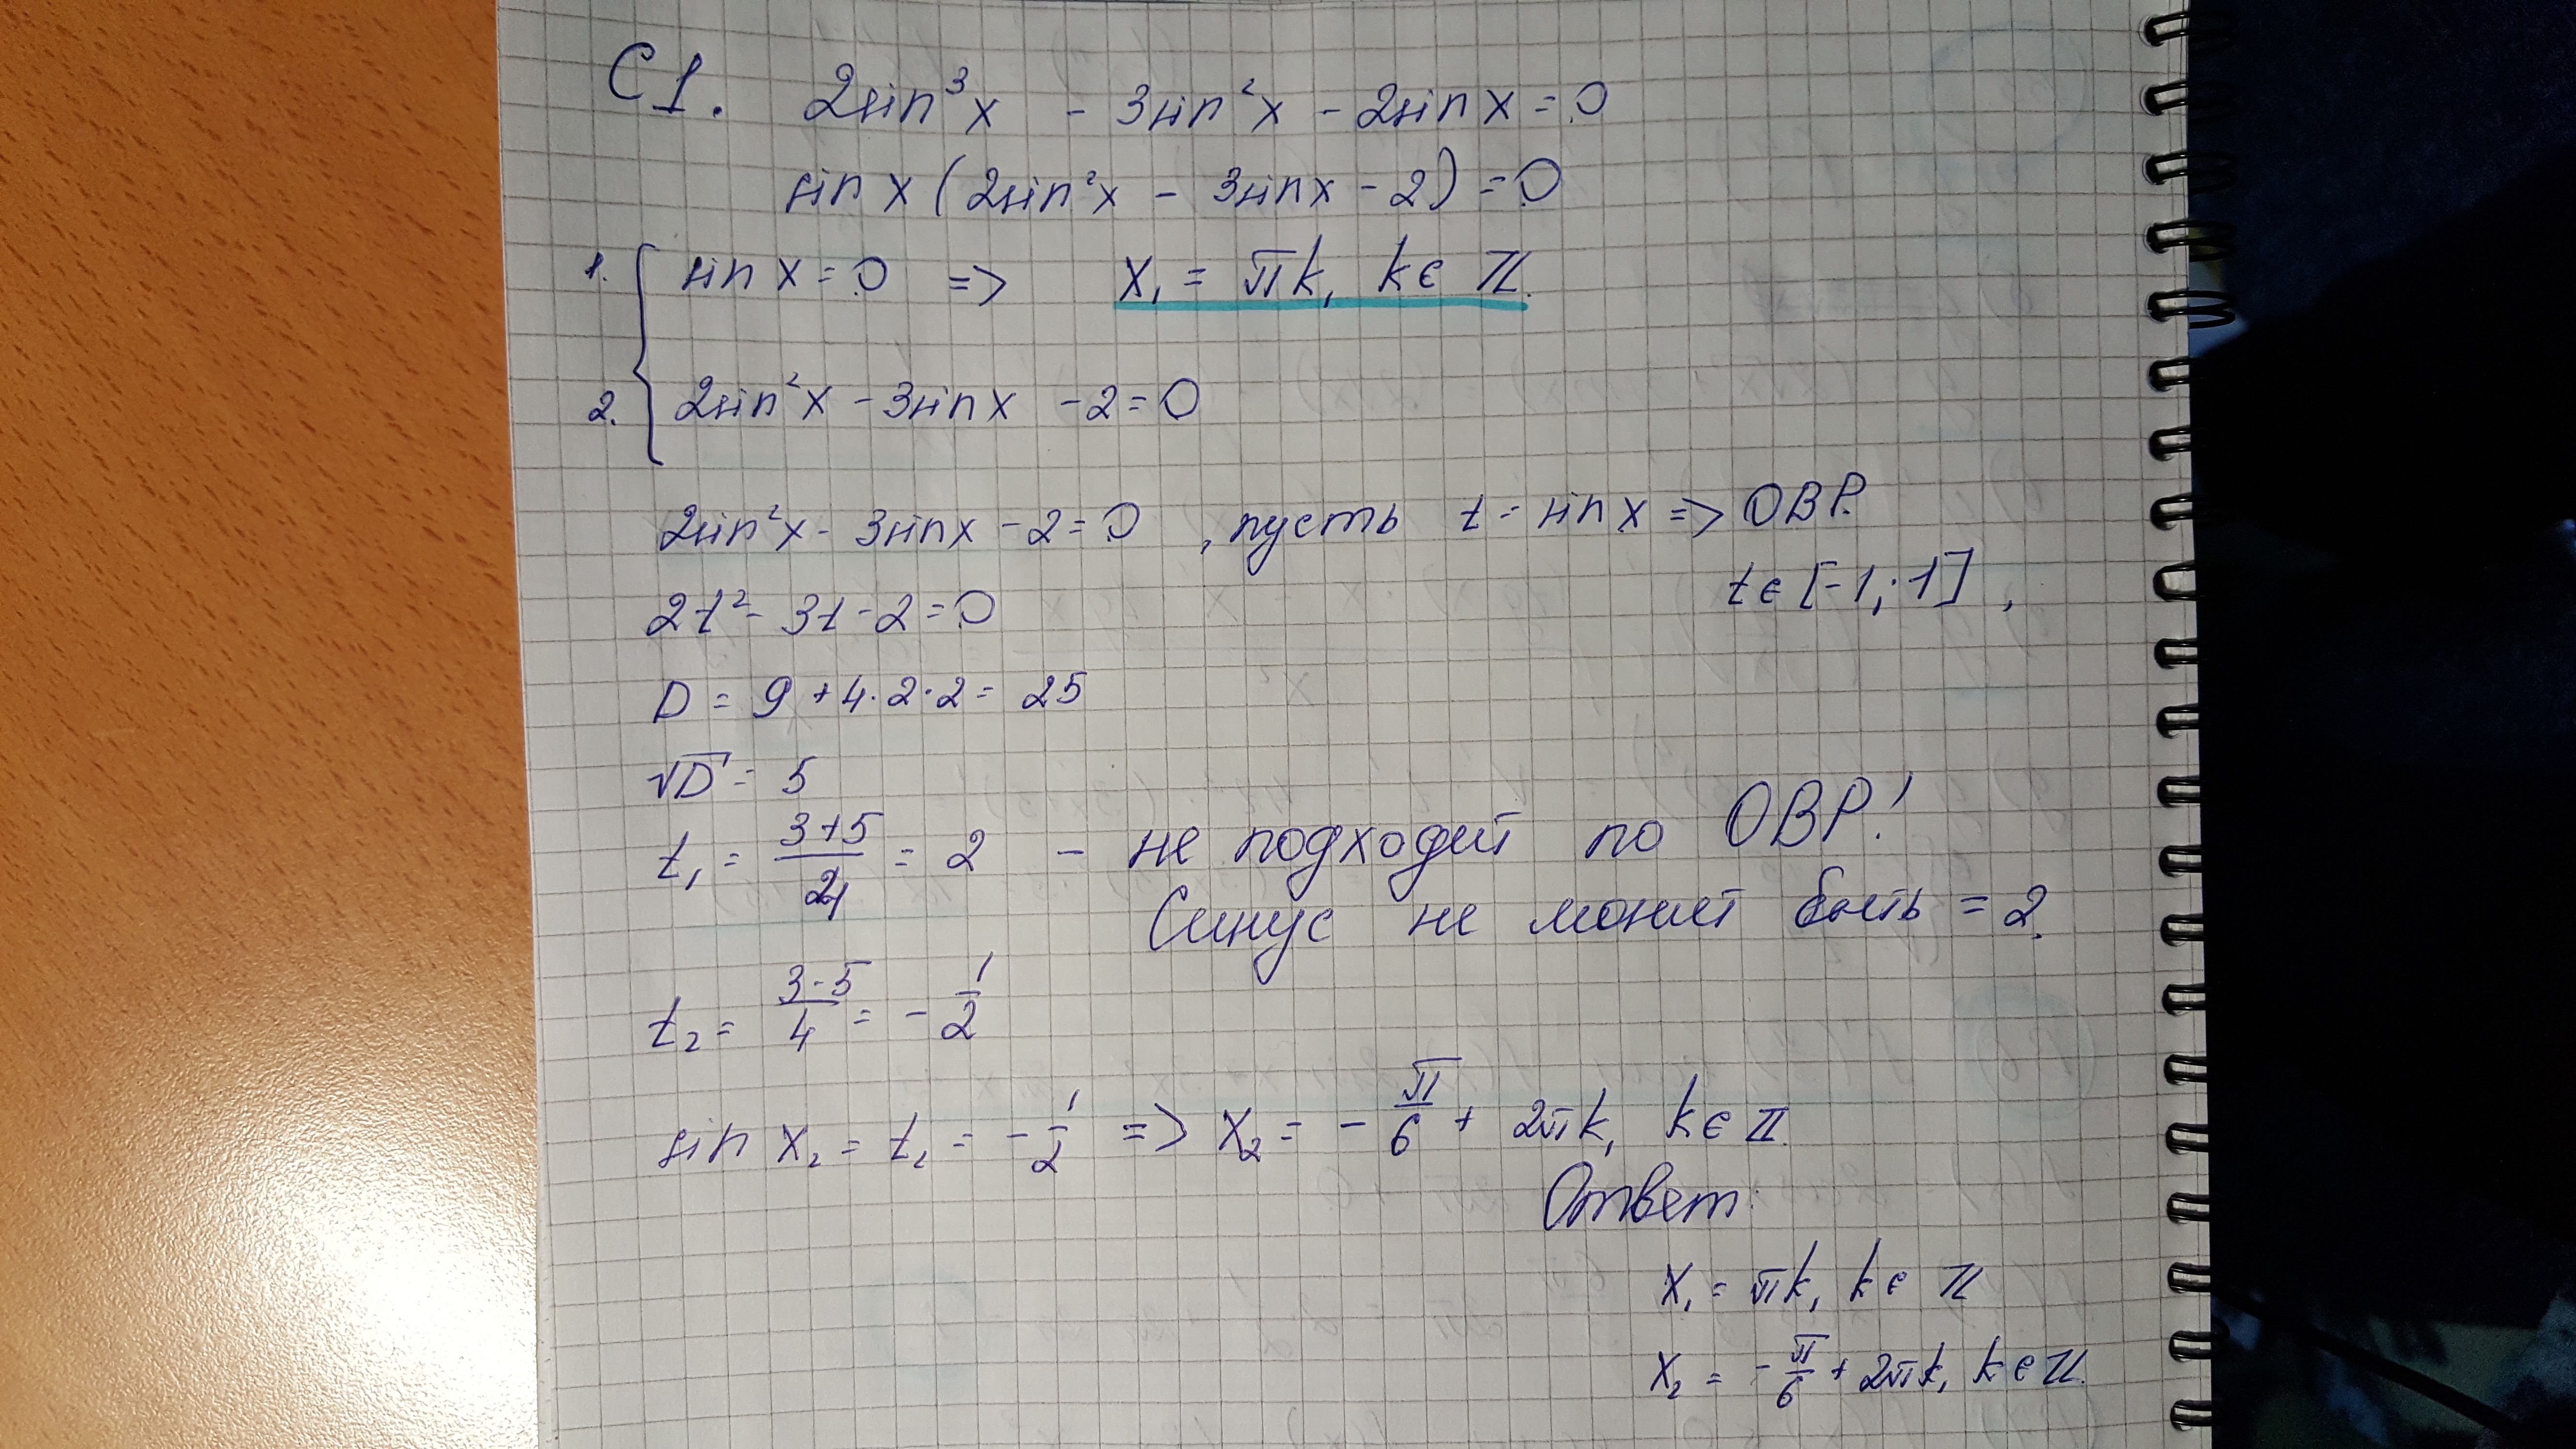 С1. 2sin³x - 3sin²x - 2sin x = 0
sin x (2sin²x - 3sinx - 2) = 0
1. { sin x = 0 => x₁ = πk, k ∈ ℤ.
2. { 2sin²x - 3sinx - 2 = 0
2sin²x - 3sinx - 2 = 0 , пусть t = sin x => ОВР.
t ∈ [-1; 1] ,
2t² - 3t - 2 = 0
D = 9 + 4·2·2 = 25
√D = 5
t₁ = (3+5)/4 = 2 - не подходит по ОВР!
Синус не может быть = 2.
t₂ = (3-5)/4 = -1/2
sin x₂ = t₂ = -1/2 => x₂ = -π/6 + 2πk, k ∈ ℤ.
Ответ:
x₁ = πk, k ∈ ℤ
x₂ = -π/6 + 2πk, k ∈ ℤ.